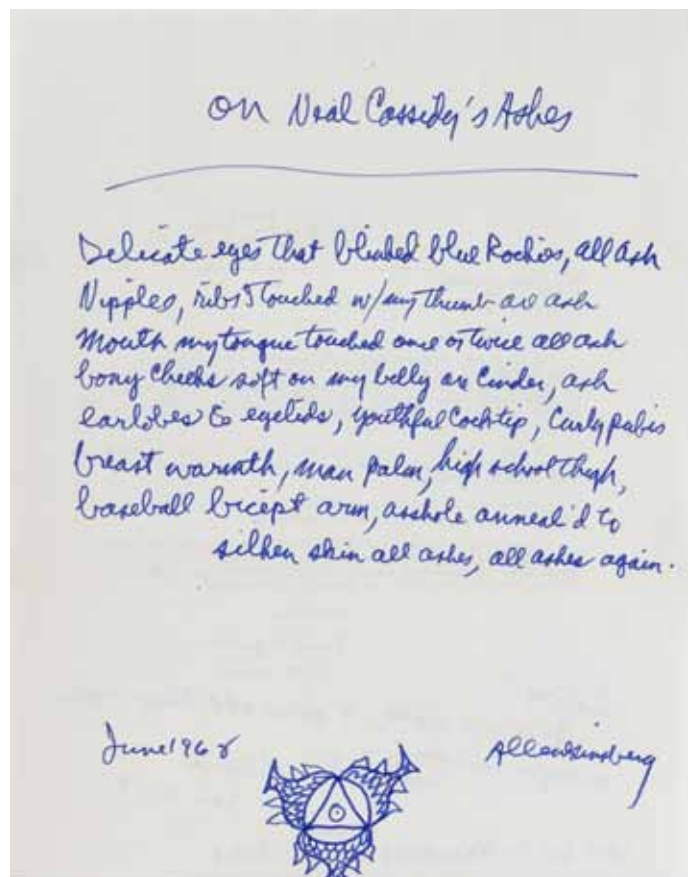 on Neal Cassidy's Ashes
Delicate eyes that blinked blue Rockies, all ash
Nipples, ribs I touched w/my thumb are ash
Mouth my tongue touched once or twice all ash
bony Cheeks soft on my belly are Cinder, ash
earlobes & eyelids, youthful Cocktip, Curly pubis
breast warmth, man palm, high school thigh,
baseball bicept arm, asshole anneal'd to
silken skin all ashes, all ashes again.
June 1968
Allen Ginsberg